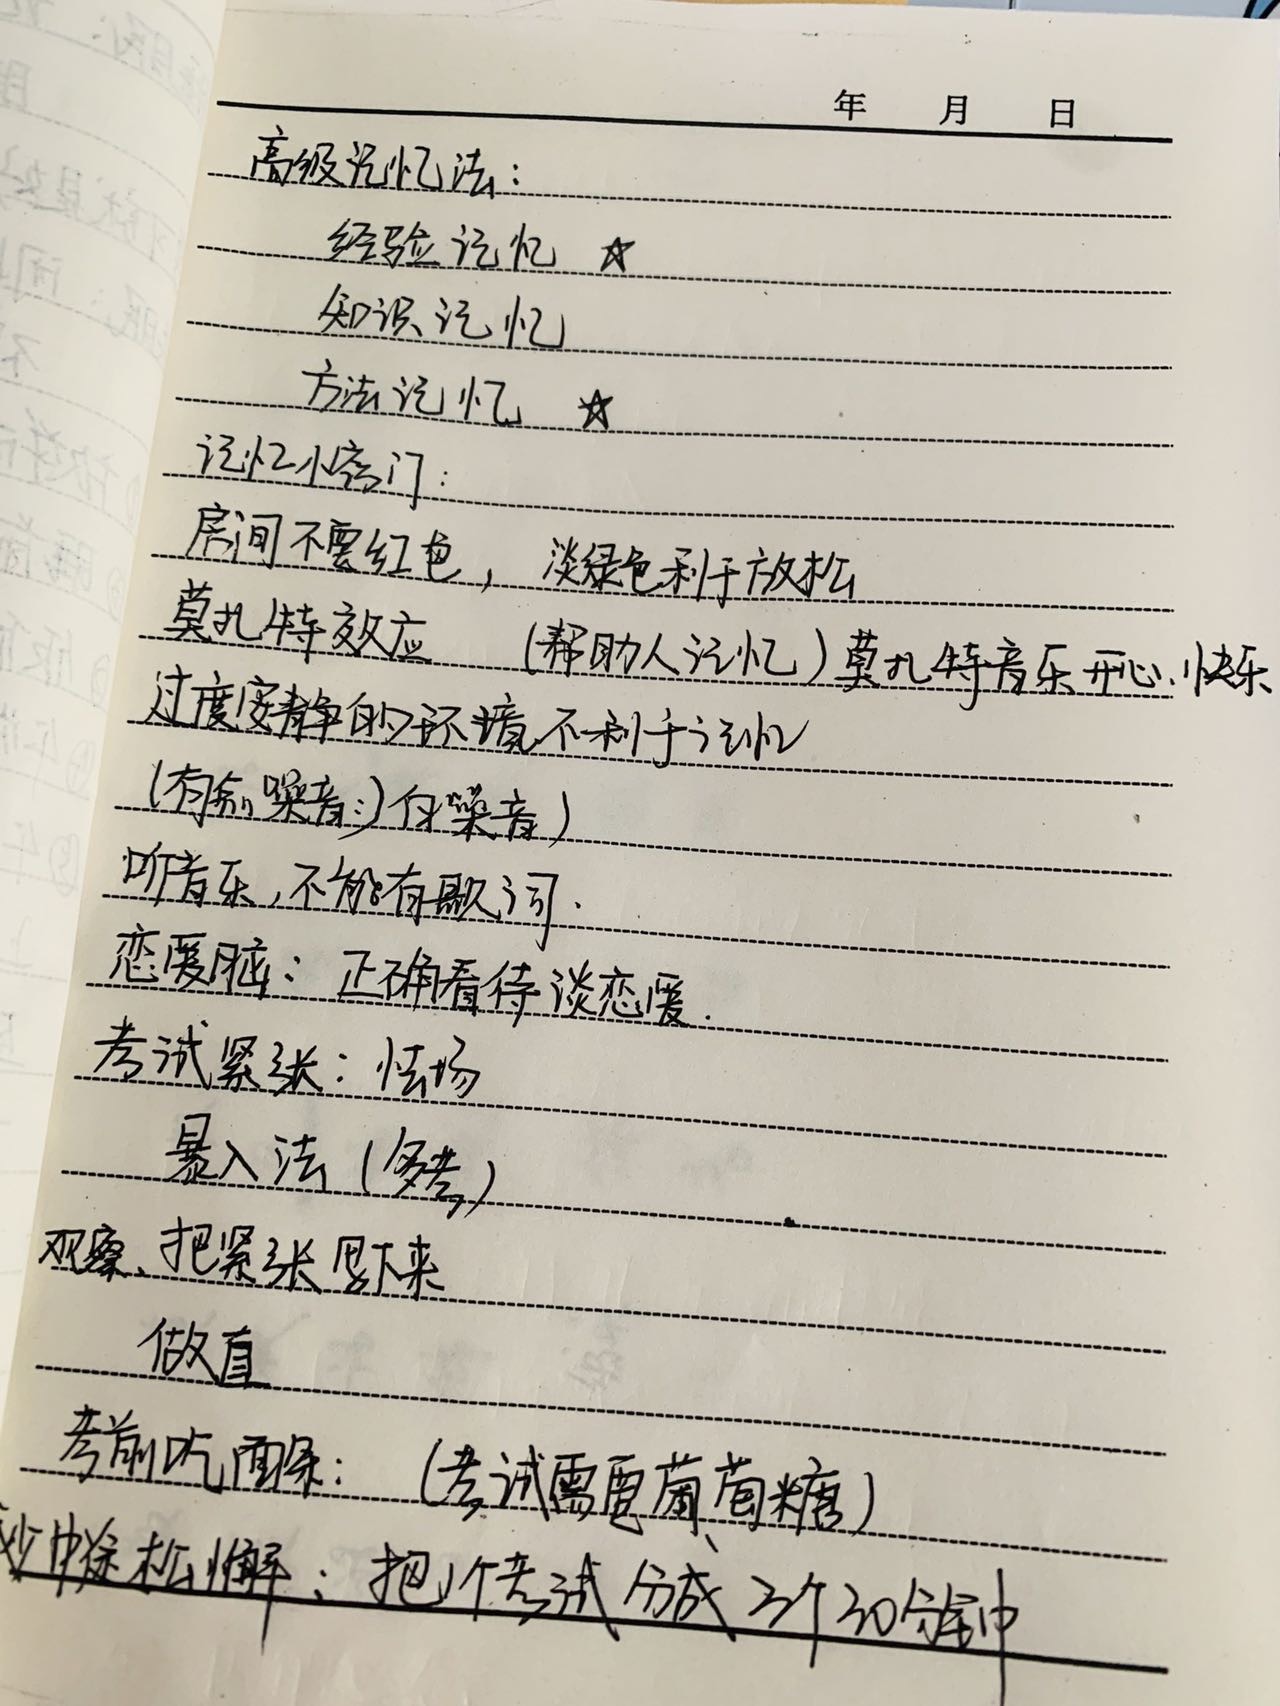 年 月 日
高级记忆法：
经验记忆 ☆
知识记忆
方法记忆 ☆
记忆小窍门：
房间不要红色，淡绿色利于放松
莫扎特效应 （帮助人记忆）莫扎特音乐开心、快乐
过度安静的环境不利于记忆
（有氛噪音：）白噪音）
听音乐，不能有歌词．
恋爱脑：正确看待谈恋爱．
考试紧张：怯场
暴入法（多考）
观察、把紧张写下来
做直
考前吃面条：（考试需要葡萄糖）
减少中途松懈：把1个考试分成3个30分钟